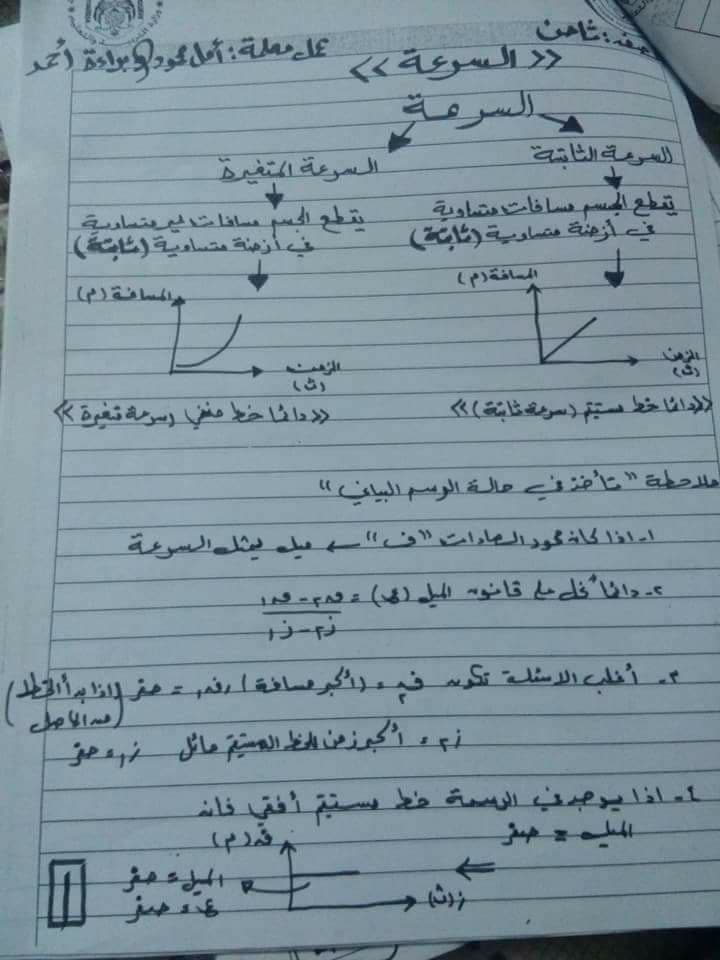 صف: ثامن
عمل معلمة: أمل محمود و براءة أحمد
<< السرعة >>
السرعة
السرعة الثابتة
السرعة المتغيرة
يقطع الجسم مسافات متساوية
في أزمنة متساوية (ثابتة)
يقطع الجسم مسافات غير متساوية
في أزمنة متساوية (ثابتة)
المسافة (م)
الزمن
(ث)
المسافة (م)
الزمن
(ث)
<< دائما خط مستقيم (سرعة ثابتة) >>
<< دائما خط منحني (سرعة متغيرة >>
ملاحظة " تأخذ في حالة الرسم البياني "
١- اذا كان محور الصادات "ف" ← ميل يمثل السرعة
٢- دائما نحل على قانون الميل (ع) = ف٢ - ف١
ز٢ - ز١
٣- أغلب الاسئلة تكون ف٢ = (أكبر مسافة) ، ف١ = صفر (اذا بدأ الخط
من الأصل)
ز٢ = أكبر زمن للخط المستقيم مائل ز١ = صفر
٤- اذا يوجد في الرسمة خط مستقيم أفقي فان
الميل = صفر
ف (م)
الميل = صفر
ع = صفر
ز (ث)
١